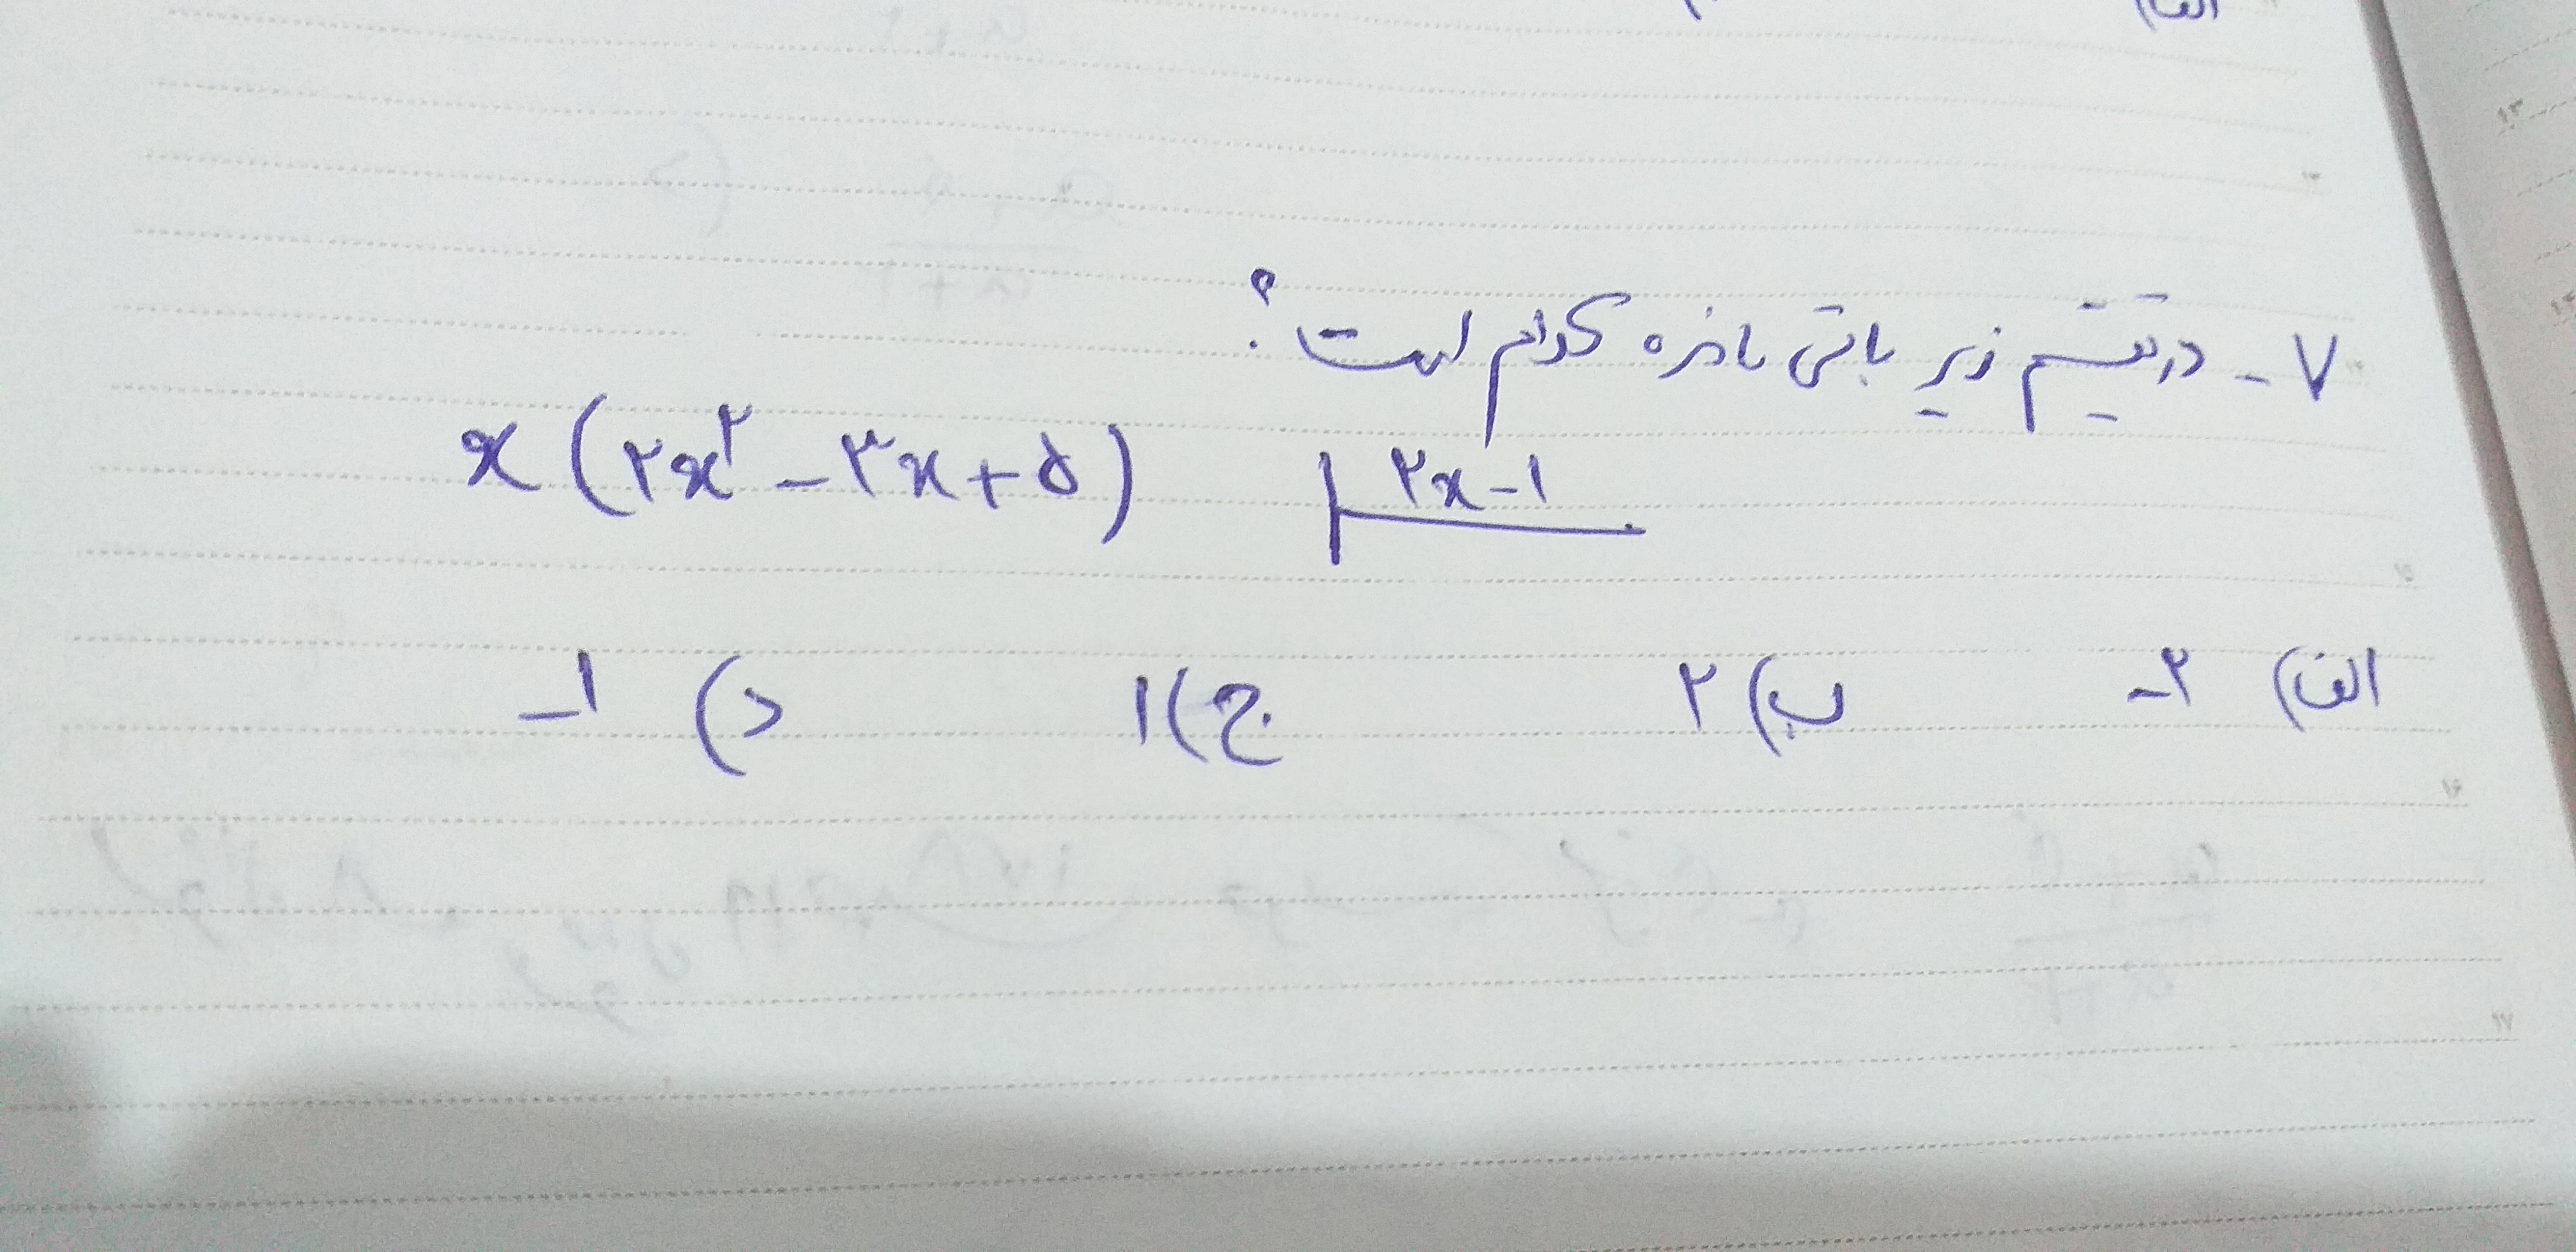 الف)
۷- در تقسیم زیر باقی مانده کدام است؟
x(۲x²-۳x+۵) |۲x-۱
الف) -۲ ب) ۲ ج) ۱ د) -۱